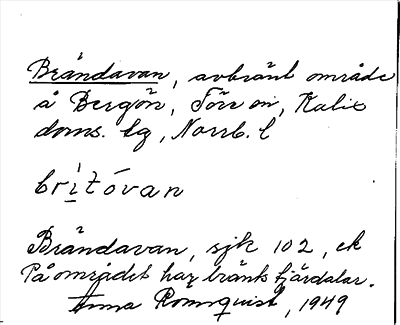 Brändavan, avbränt område
å Bergön, Töre sn, Kalix
doms. lg, Norrb. l
britóvan
Brändavan, sjk 102, ek
På området har bränts tjärdalar.
Anna Rönnquist, 1949